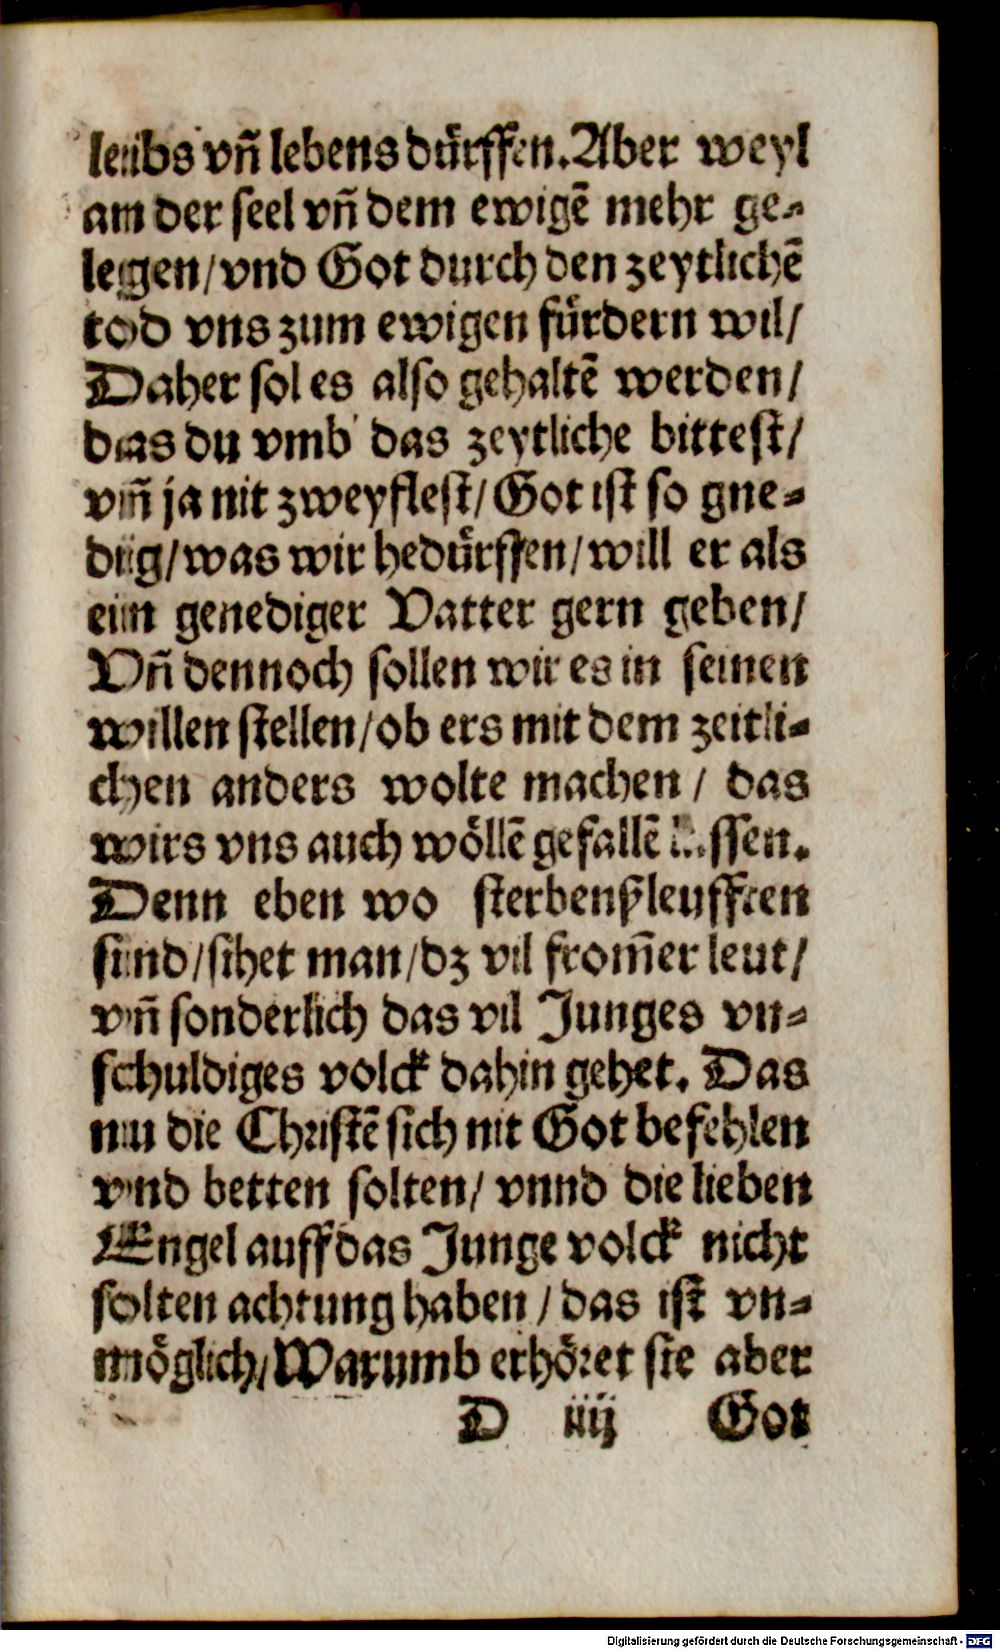 leibs vñ lebens dürffen. Aber weyl
am der seel vñ dem ewigẽ mehr ge-
legen/ vnd Got durch den zeytlichẽ
tod vns zum ewigen fürdern wil/
Daher sol es also gehaltẽ werden/
das du vmb das zeytliche bittest/
vñ ja nit zweyflest/ Got ist so gne-
dig/ was wir bedürffen/ will er als
ein genediger Vatter gern geben/
Vñ dennoch sollen wir es in seinen
willen stellen/ ob ers mit dem zeitli-
chen anders wolte machen / das
wirs vns auch wöllẽ gefallẽ lassen.
Denn eben wo sterbenßleufften
sind/ sihet man/ dz vil from̃er leut/
vñ sonderlich das vil Junges vn-
schuldiges volck dahin gehet. Das
nun die Christẽ sich nit Got befehlen
vnd betten solten/ vnnd die lieben
Engel auff das Junge volck nicht
solten achtung haben / das ist vn-
möglich/ Warumb erhöret sie aber
D iiij Got
Digitalisierung gefördert durch die Deutsche Forschungsgemeinschaft - DFG